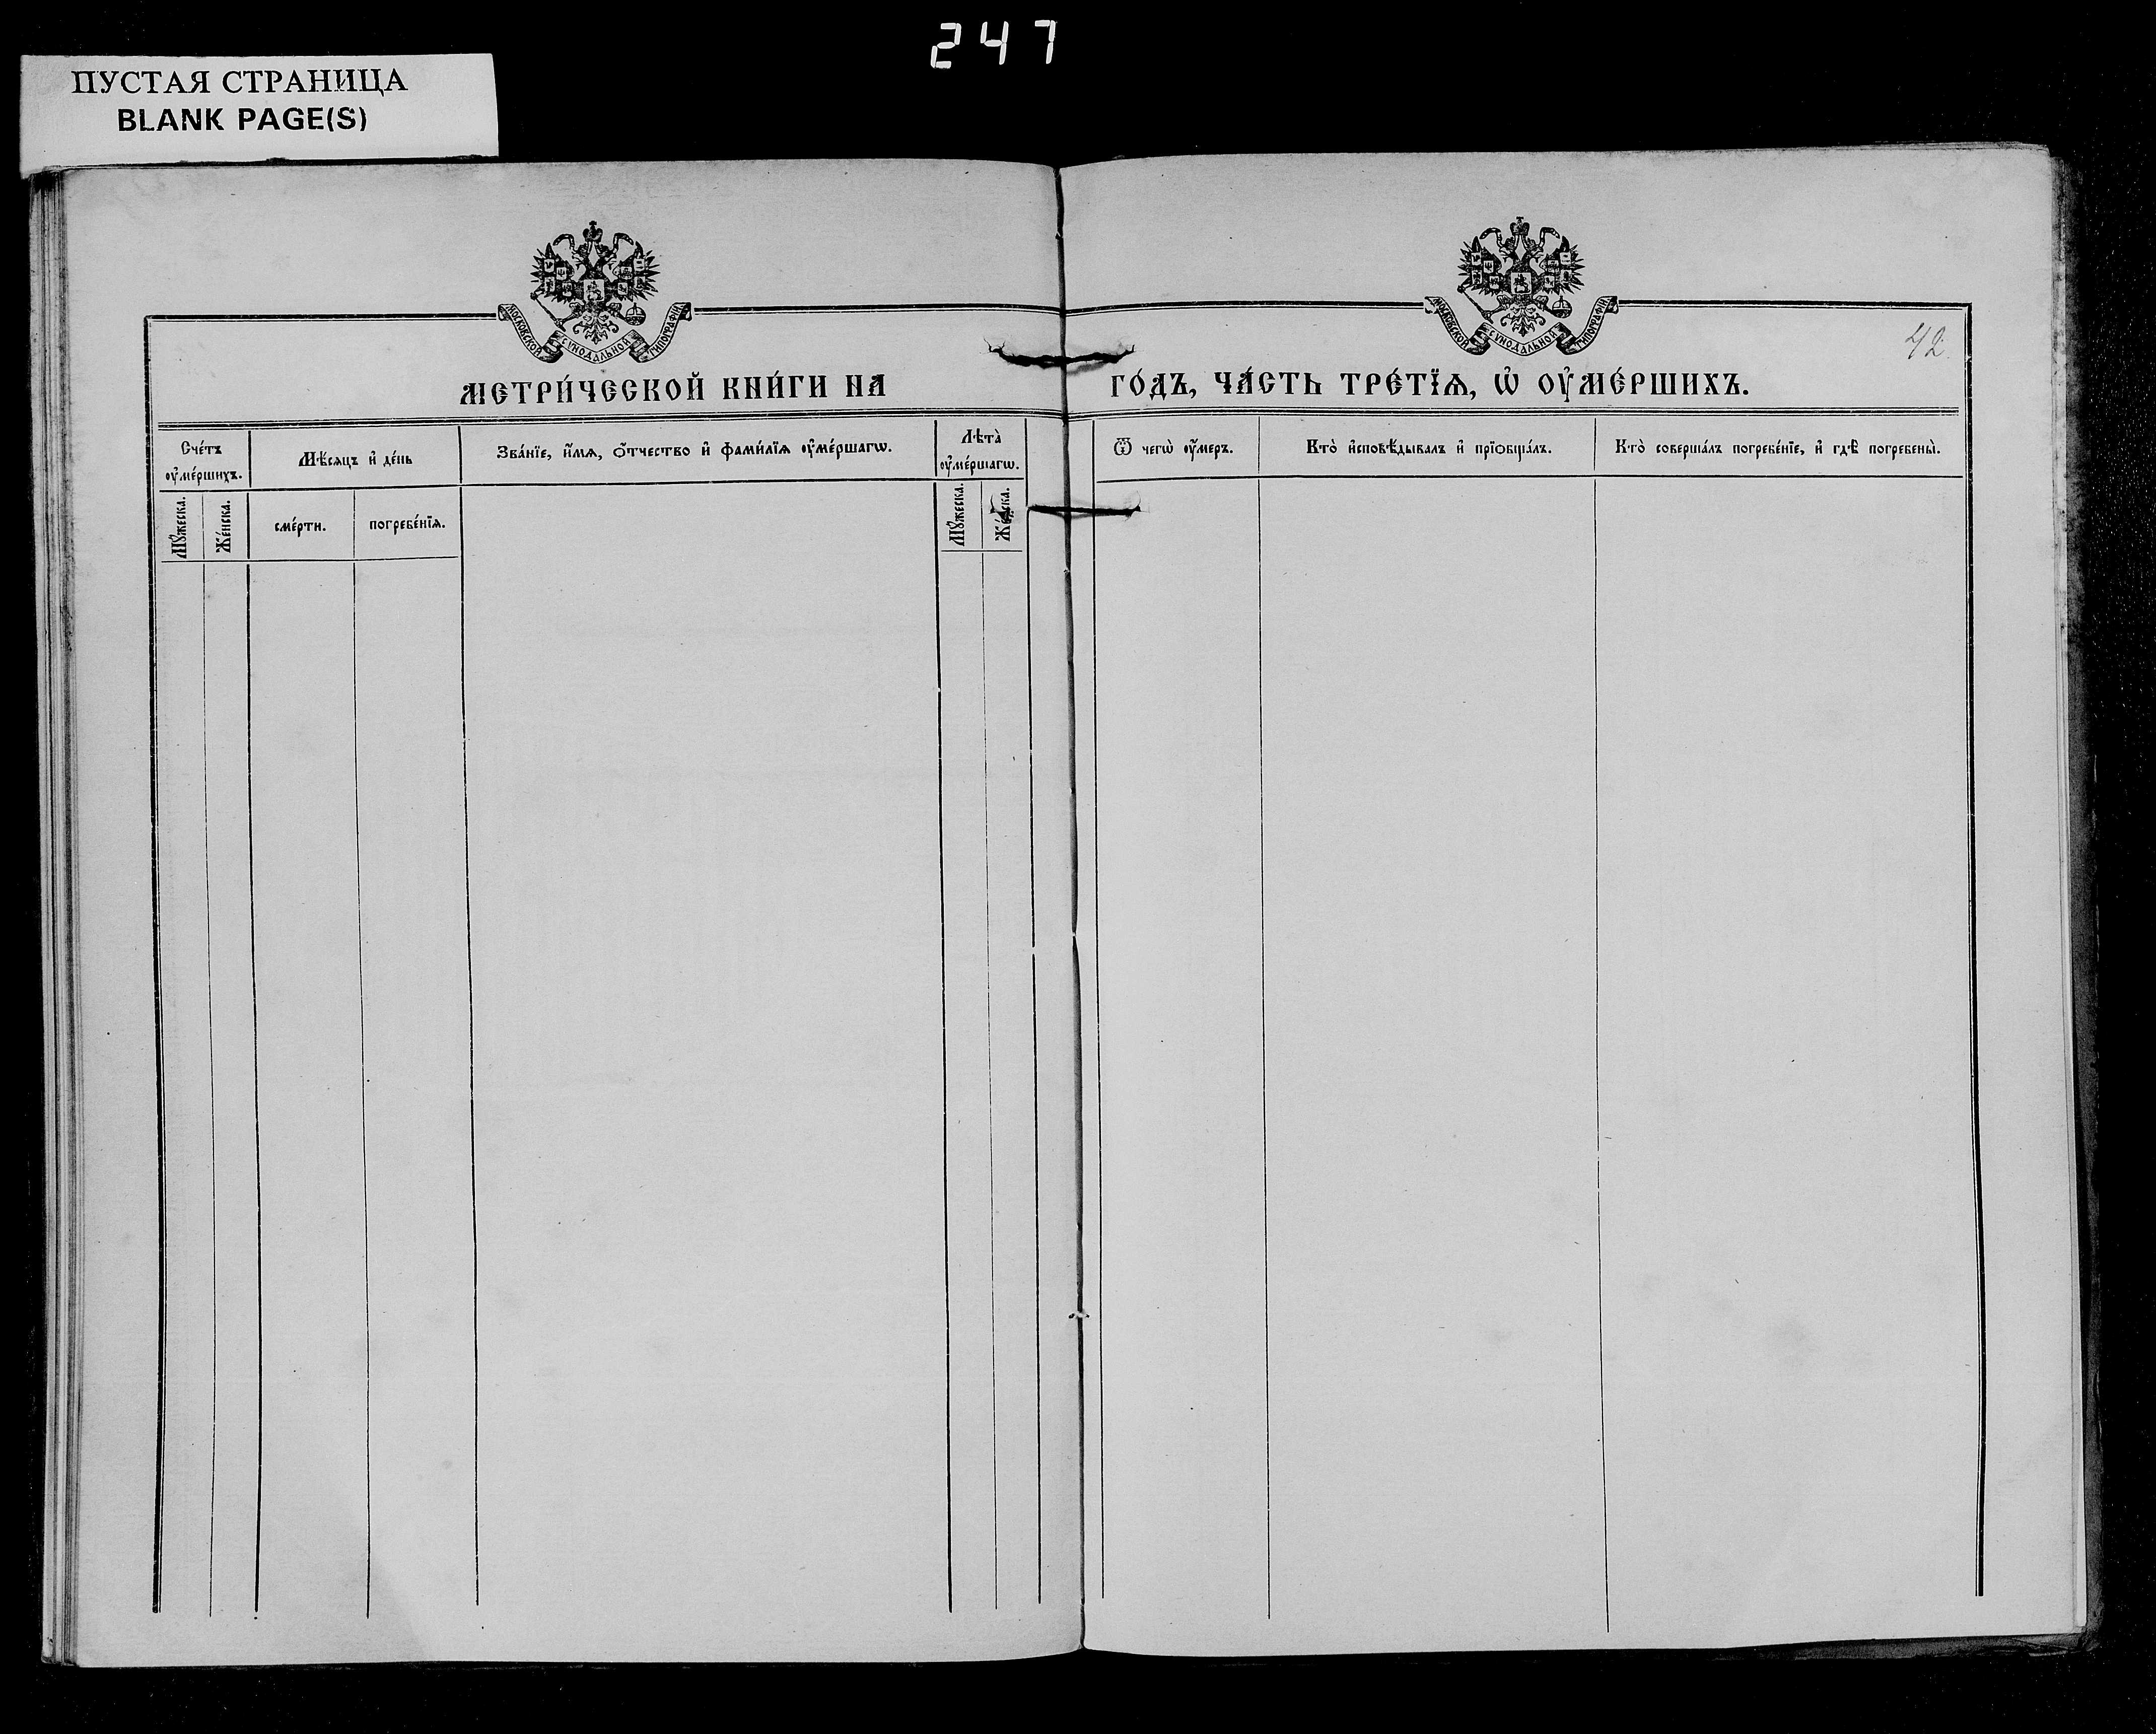 247
ПУСТАЯ СТРАНИЦА
BLANK PAGE(S)
МОСКОВСКОЙ СУНОДАЛЬНОЙ ТИПОГРАФІИ
МОСКОВСКОЙ СУНОДАЛЬНОЙ ТИПОГРАФІИ
42.
МЕТРИ́ЧЕСКОЙ КНИ́ГИ НА ГО́ДЪ, ЧА́СТЬ ТРЕ́ТЇѦ, Ѡ҆ ОУ҆МЕ́РШИХЪ.
Сче́тъ оу҆ме́ршихъ.
Мѣ́сяцъ и҆ де́нь
Зва́нїе, и҆́мѧ, о҆́тчество и҆ фами́лїѧ оу҆ме́ршагѡ.
Лѣта̀ оу҆ме́ршагѡ.
Ѿ чегѡ̀ оу҆́меръ.
Кто̀ и҆сповѣ́дывалъ и҆ прїѻбща́лъ.
Кто̀ соверша́лъ погребе́нїе, и҆ гдѣ̀ погребены̀.
Мꙋ́жеска.
Же́нска.
сме́рти.
погребе́нїѧ.
Мꙋ́жеска.
Же́нска.